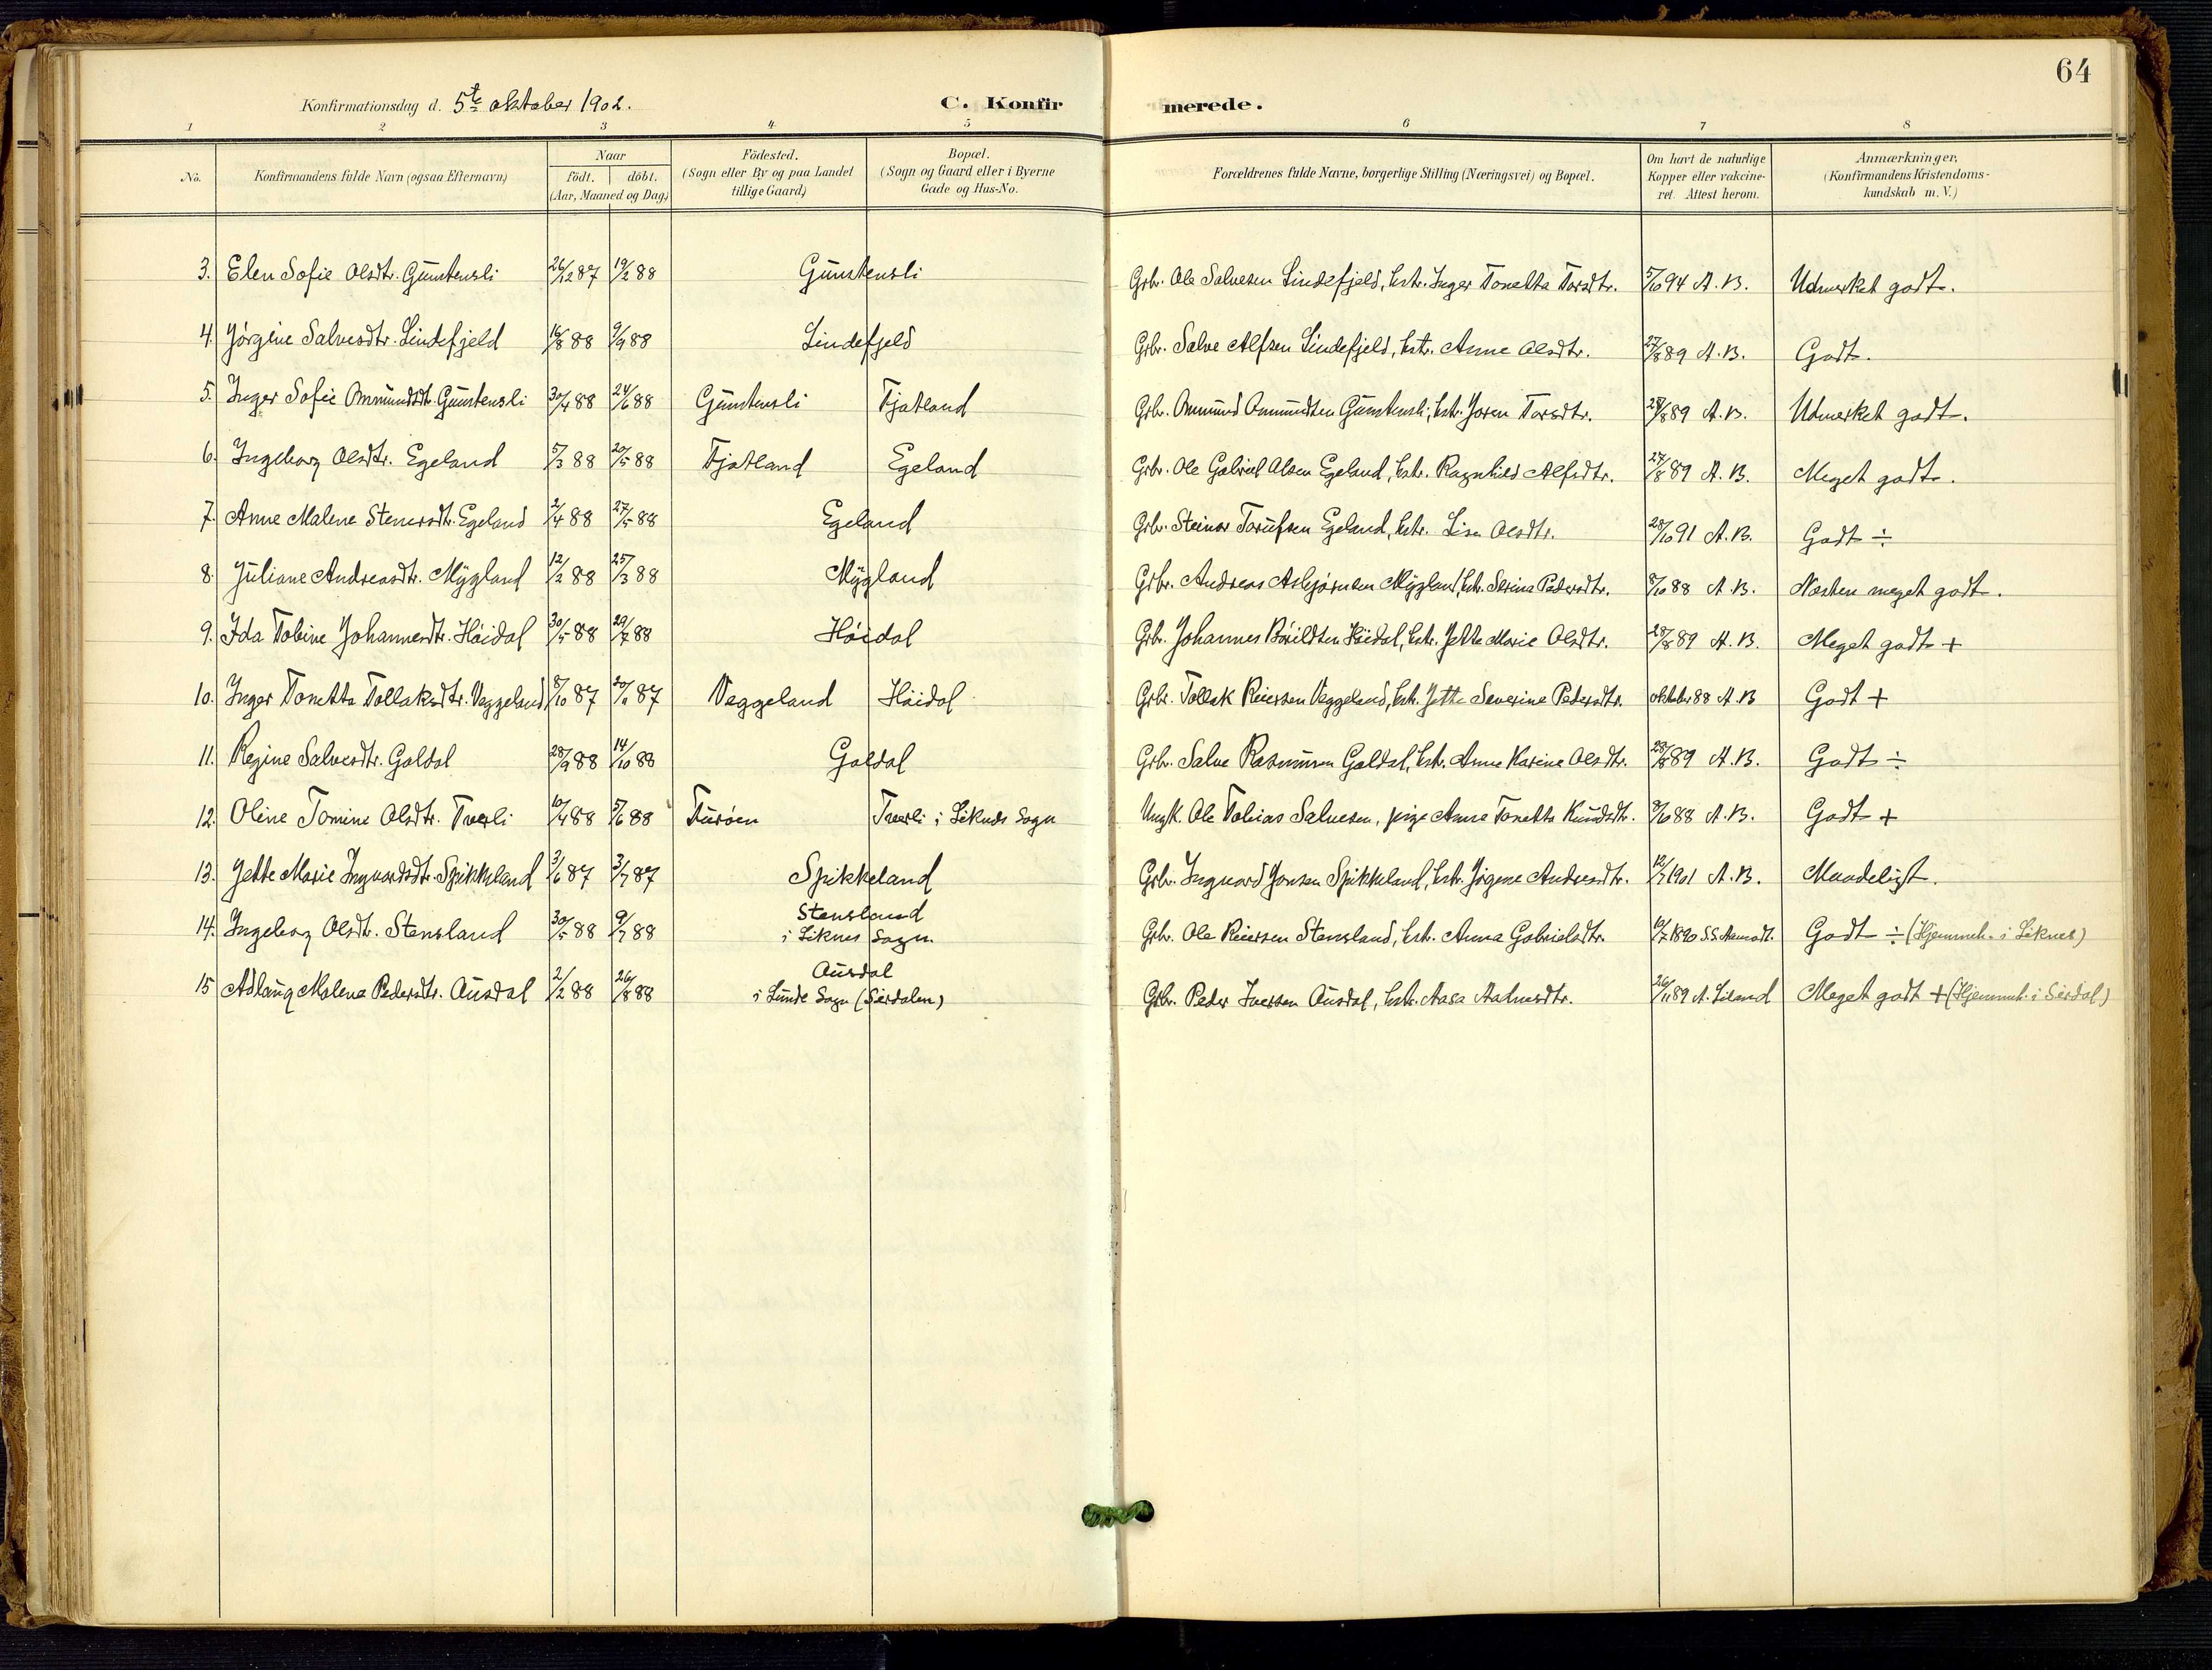 64
Konfirmationsdag d. 5te oktober 1902.
C. Konfirmerede.
1 2 3 4 5 6 7 8
No.
Konfirmandens fulde Navn (ogsaa Efternavn)
Naar
födt. döbt.
(Aar, Maaned og Dag)
Födested.
(Sogn eller By og paa Landet
tillige Gaard)
Bopæl.
(Sogn og Gaard eller i Byerne
Gade og Hus-No.
Forældrenes fulde Navne, borgerlige Stilling (Næringsvei) og Bopæl.
Om havt de naturlige
Kopper eller vakcine-
ret. Attest herom.
Anmærkninger,
(Konfirmandens Kristendoms-
kundskab m. V.)
3. Elen Sofie Olsdtr. Gunstensli 26/12 87 19/2 88 Gunstensli Grbr. Ole Salvesen Lindefjeld, hstr. Inger Tonette Torsdtr. 5/10 94 A. B. Udmerket godt.
4. Jörgine Salvesdtr. Lindefjeld 16/8 88 9/9 88 Lindefjeld Grbr. Salve Alfsen Lindefjeld, hstr. Anne Olsdtr. 27/8 89 A. B. Godt.
5. Inger Sofie Ommundsdtr. Gunstensli 30/4 88 24/6 88 Gunstensli Fjotland Grbr. Ommund Ommundsen Gunstensli, hstr. Joren Torsdtr. 28/8 89 A. B. Udmerket godt.
6. Ingeborg Olsdtr. Egeland 5/3 88 20/5 88 Fjotland Egeland Grbr. Ole Gabriel Olsen Egeland, hstr. Ragnhild Alfsdtr. 27/8 89 A. B. Meget godt.
7. Anne Malene Stenersdtr. Egeland 2/4 88 27/5 88 Egeland Grbr. Steinar Torjufsen Egeland, hstr. Lisa Olsdtr. 28/10 91 A. B. Godt ÷
8. Juliane Andreasdtr. Mygland 12/2 88 25/3 88 Mygland Grbr. Andreas Asbjörnsen Mygland, hstr. Serina Pedersdtr. 8/10 88 A. B. Næsten meget godt.
9. Ida Tobine Johannesdtr. Höidal 30/5 88 29/7 88 Höidal Grbr. Johannes Böuildsen Höidal, hstr. Jette Marie Olsdtr. 28/8 89 A. B. Meget godt +
10. Inger Tonette Tollaksdtr. Veggeland 8/10 87 20/11 87 Veggeland Höidal Grbr. Tollak Reiersen Veggeland, hstr. Jette Severine Pedersdtr. oktober 88 A. B Godt +
11. Regine Salvesdtr. Galdal 28/9 88 14/10 88 Galdal Grbr. Salve Rasmussen Galdal, hstr. Anne Karine Olsdtr. 28/8 89 A. B. Godt ÷
12. Oline Tomine Olsdtr. Tverli 10/4 88 5/6 88 Furöen Tverli i Liknes Sogn Ungk. Ole Tobias Salvesen, pige Anna Tonette Knudsdtr. 8/10 88 A. B. Godt +
13. Jette Marie Ingvardsdtr. Spikkeland 3/6 87 3/7 87 Spikkeland Grbr. Ingvard Jonsen Spikkeland, hstr. Jörgine Andreasdtr. 12/7 1901 A. B. Maadeligt.
14. Ingeborg Olsdtr. Stensland 30/5 88 9/7 88 Stensland
i Liknes Sogn Grbr. Ole Reiersen Stensland, hstr. Anna Gabrielsdtr. 10/7 1890 S.S. Aamodt. Godt ÷ (Hjemmeh. i Liknes)
15 Adlaug Malena Pedersdtr. Ousdal 2/2 88 26/8 88 Ousdal
i Lunde Sogn (Sirdalen) Grbr. Peder Iversen Ousdal, hstr. Aasa Aalvesdtr. 26/11 89 A. Liland Meget godt + (Hjemmeh. i Sirdal)